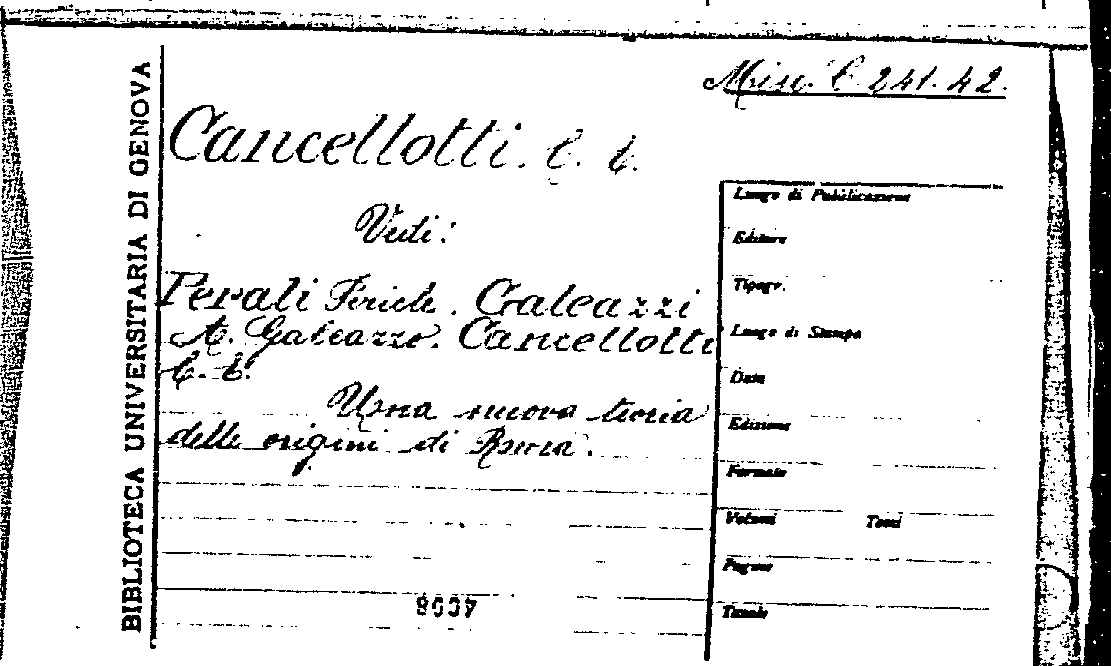 BIBLIOTECA UNIVERSITARIA DI GENOVA
Misc. C. 241.42.
Cancellotti. C. C.
Vedi:
Perali Pericle. Galeazzi
A. Galeazzo. Cancellotti
C. C.
Una nuova teoria
delle origini di Roma.
Luogo di Pubblicazione
Editore
Tipogr.
Luogo di Stampa
Data
Edizione
Formato
Volumi Tomi
Pagine
Tavole